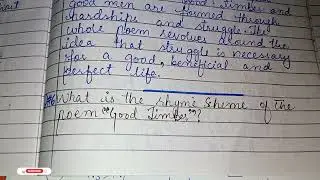 Good Timber and
Good men are formed through
hardships and struggle. The
whole poem revolves around the
idea that struggle is necessary
for a good, beneficial and
perfect life.
What is the rhyme Sheme of the
poem "Good Timber"?